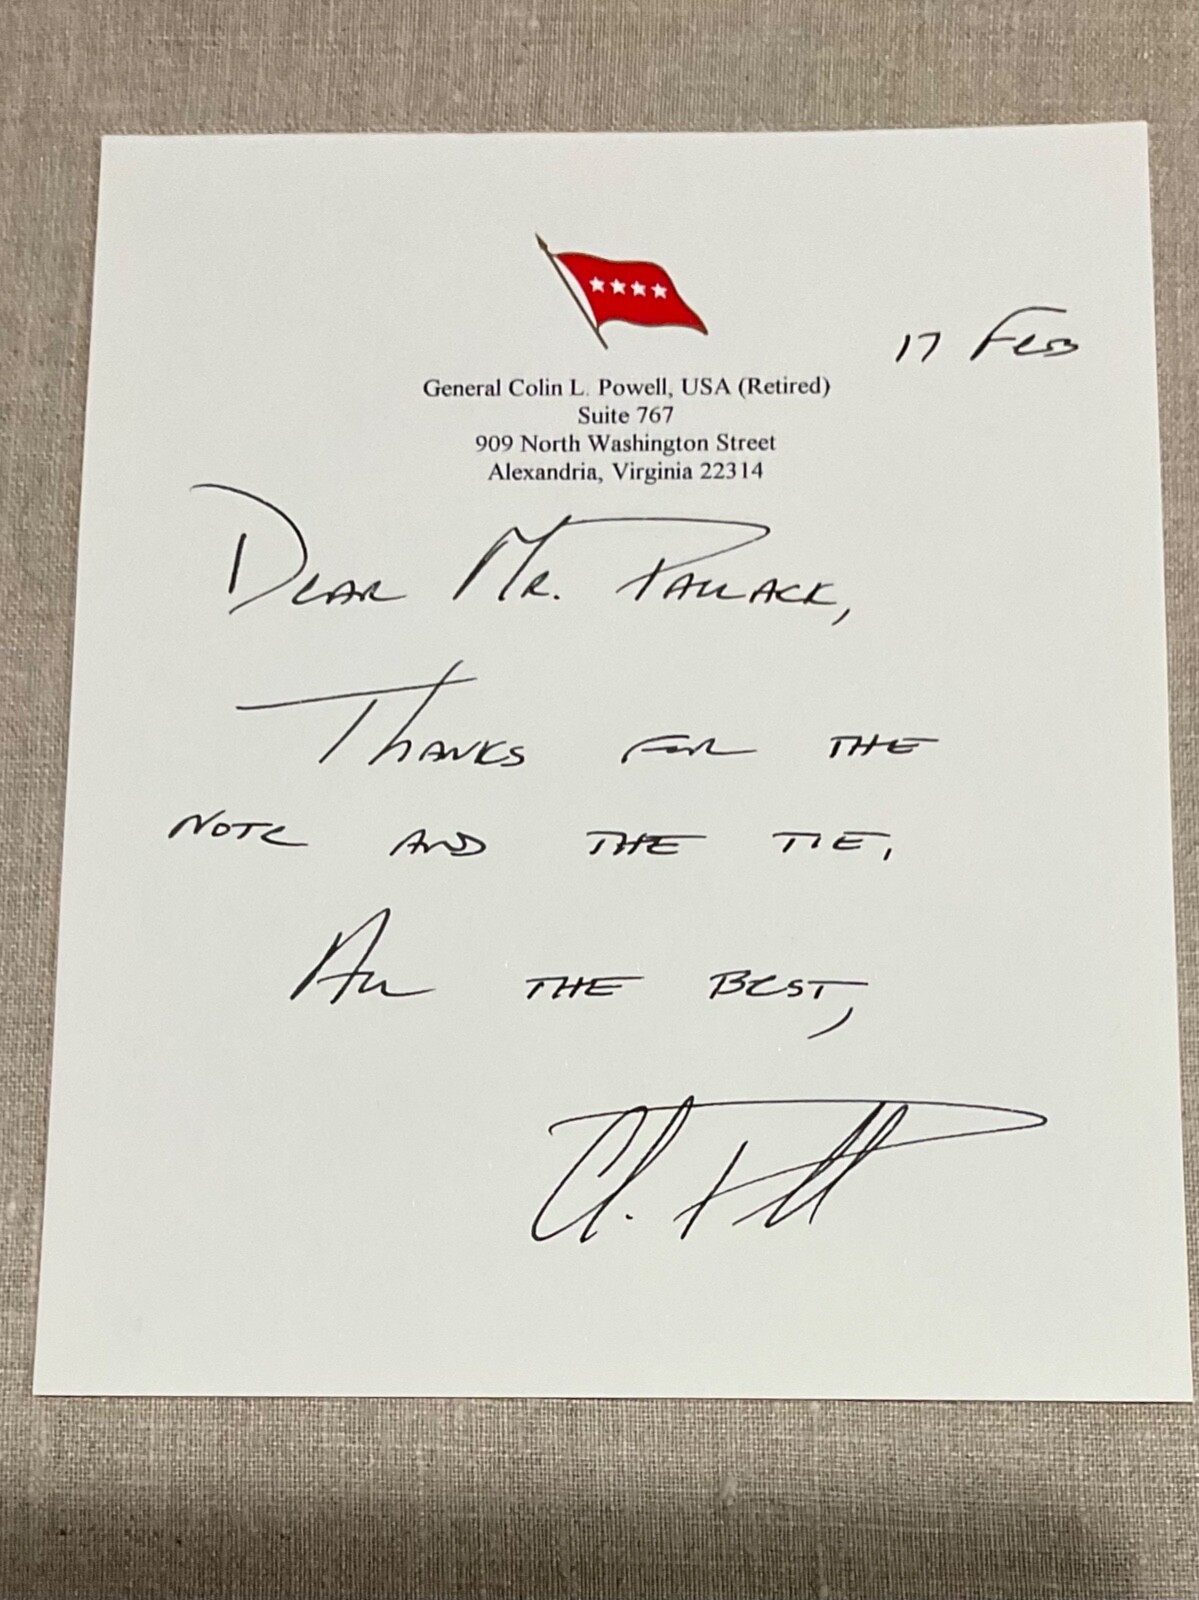 17 Feb
General Colin L. Powell, USA (Retired)
Suite 767
909 North Washington Street
Alexandria, Virginia 22314
Dear Mr. Pallack,
Thanks for the
note and the tie.
All the best,